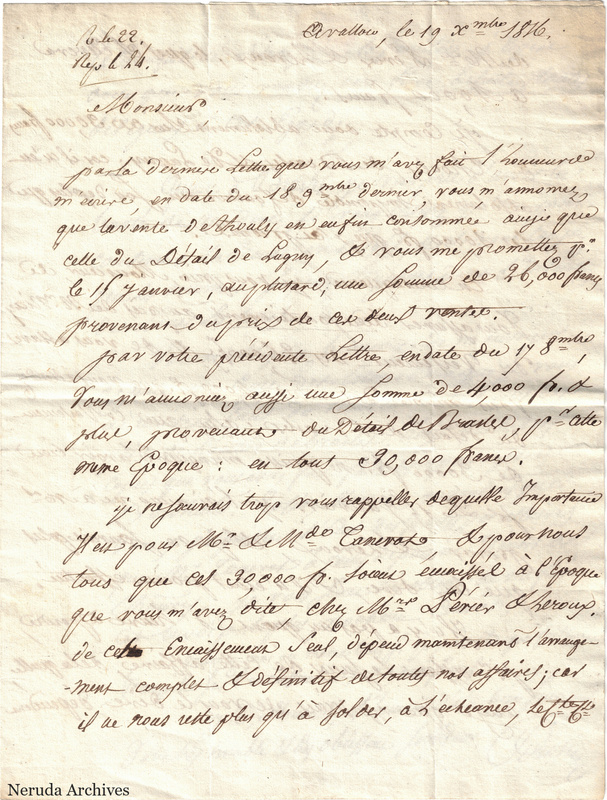 R. le 22.
Rep. le 24.
Avallon, le 19 Xmbre 1816.
Monsieur
par la derniere Lettre que vous m'avez fait l'honneur de
m'écrire en date du 18 9mbre dernier, vous m'annoncez
que la vente de thouly en enfin consommée ainsi que
celle du Détail de Lagny, & vous me promettez pr.
le 15 Janvier, au plutard, une somme de 26,000 francs
provenans du prix de ces deux ventes.
par votre précédente Lettre, en date du 17 8mbre,
Vous m'annonciez aussi une somme de 4,000 fr. &
plus, provenant du Détail de Braslet, pr. cette
même Epoque : en tout 30,000 francs.
je ne saurais trop vous rappeller de quelle Importance
Il est pour Mr. & Mde Tanevot & pour nous
tous que ces 30,000 fr. soient encaissés à l'Epoque
que vous m'avez dite, chez Mrs Périer & heroux.
de cet Encaissement Seul, dépend maintenant l'arrange-
-ment complet & définitif de toutes nos affaires; car
il ne nous reste plus qu'à solder, à l'échéance, Les
Neruda Archives